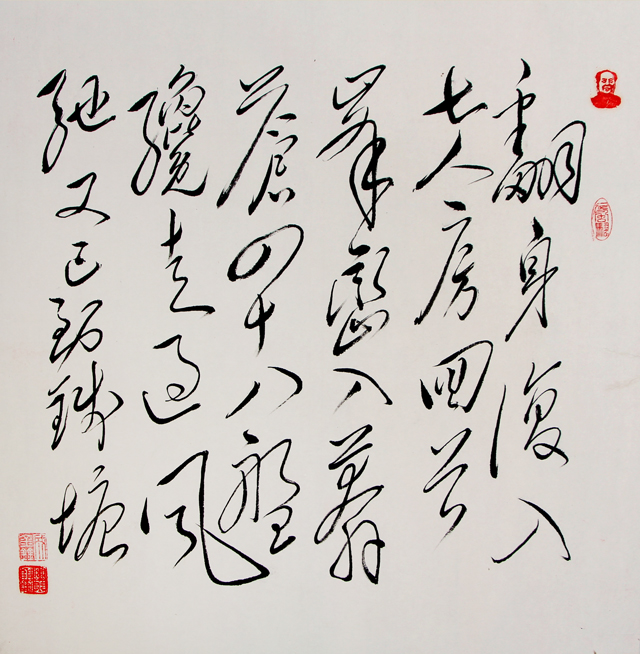 翻身復入
七人房回首
峯巒入莽
蒼四十八盤
纔走過風
馳又已到錢塘